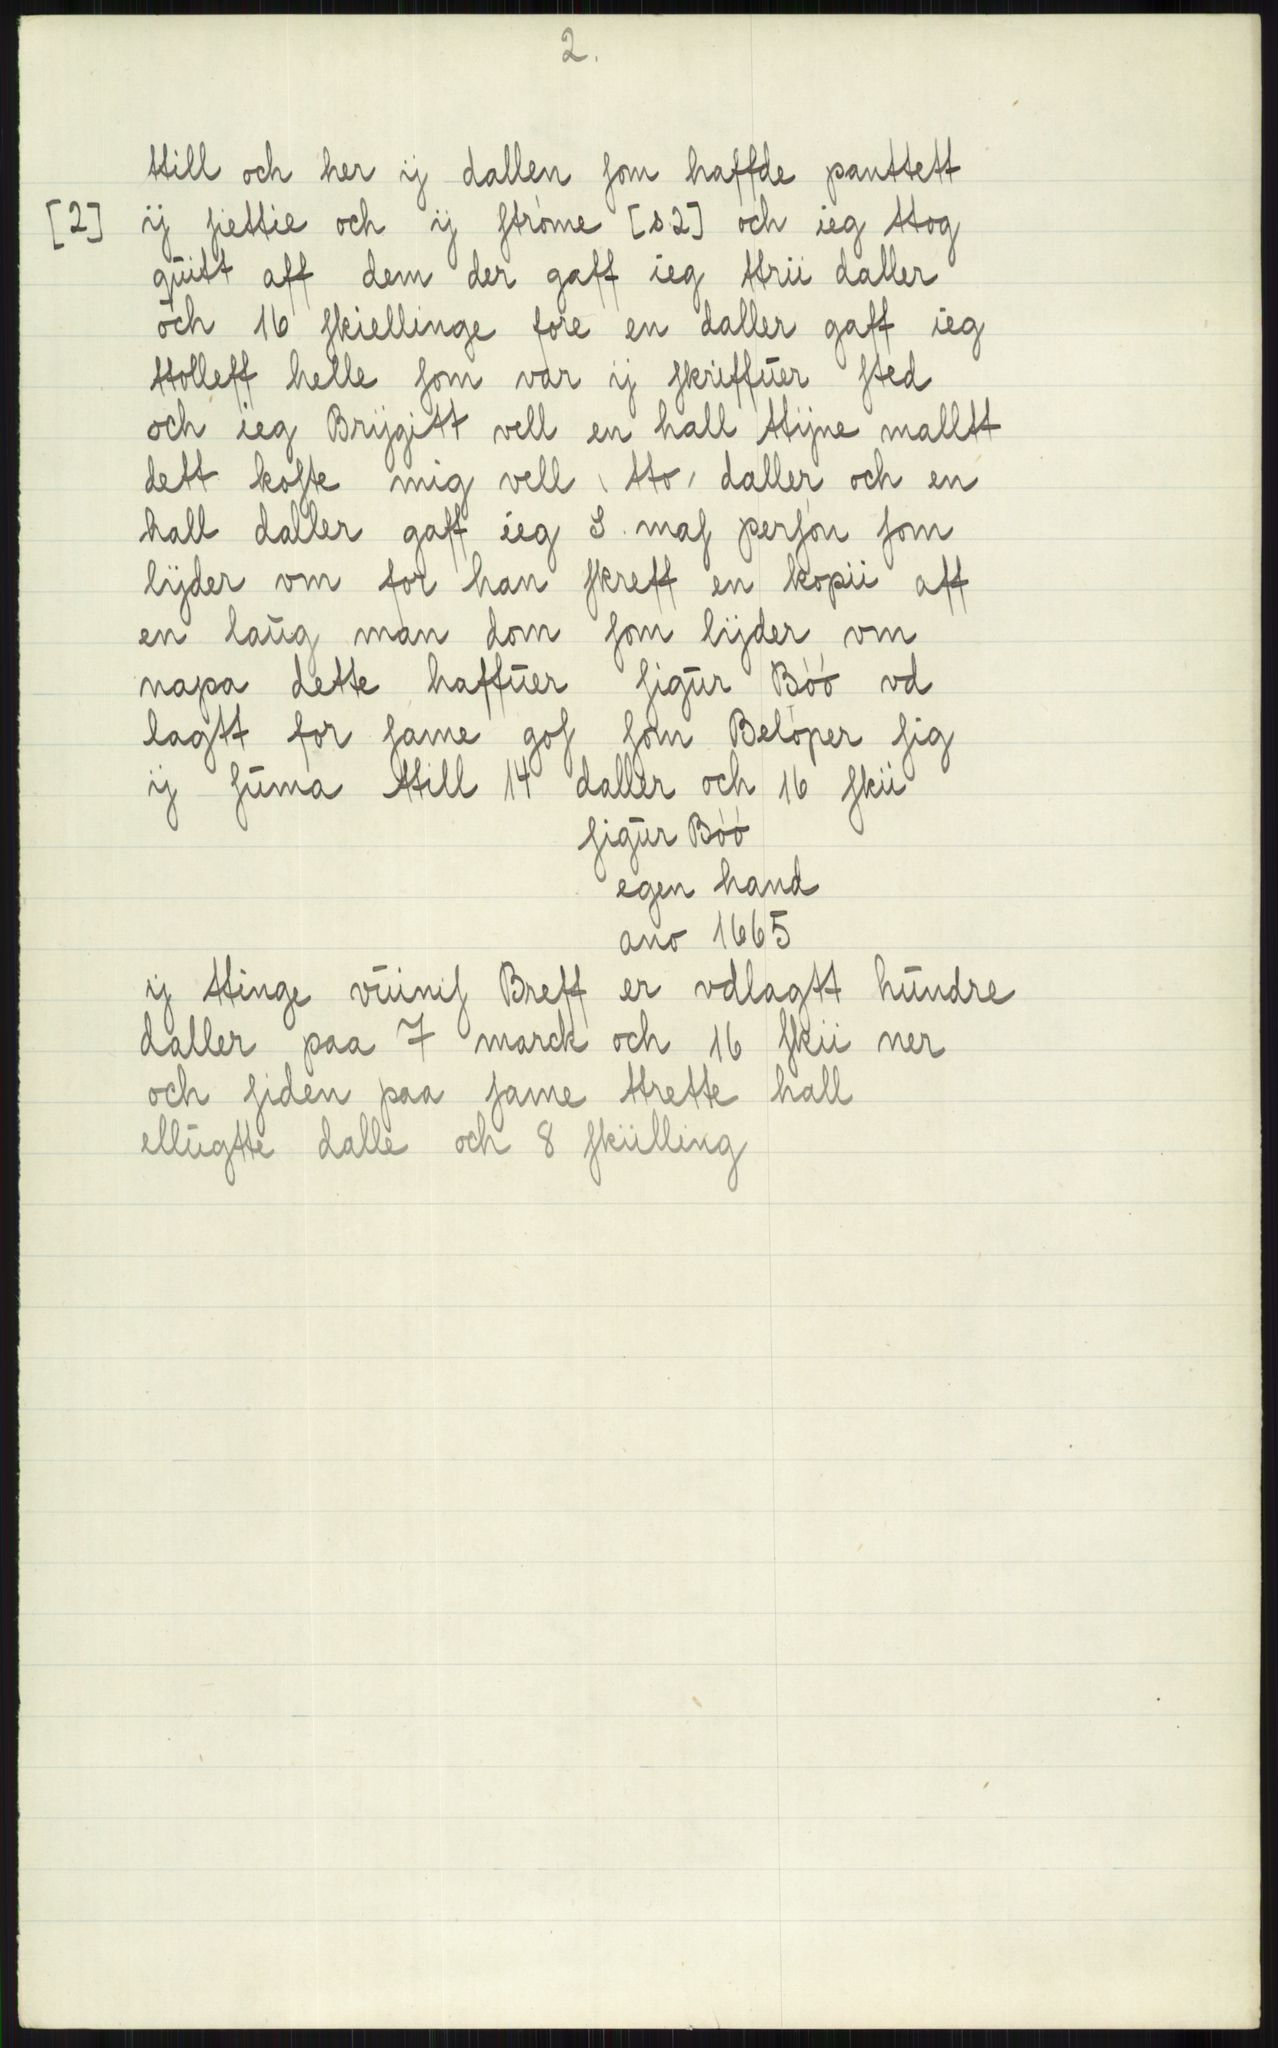 2.
ttill och her ij dallen som haffde panttett
[2] ij siettie och ij strøme [s2] och ieg ttog
quitt aff dem der gaff ieg ttrii daller
och 16 skiellinge fore en daller gaff ieg
ttolleff helle som var ij skriffuer sted
och ieg Brijgitt vell en hall ttijne malltt
dett koste mig vell tto daller och en
hall daller gaff ieg mas person som
lijder om for han skreff en kopii aff
en laug man dom som lijder om
napa dette haffuer sigur Bøø vd
lagtt for same gos som Beløper sig
ij suma ttill 14 daller och 16 skii
sigur Bøø
egen hand
ano 1665
ij ttinge vuinis Breff er vdlagtt hundre
daller paa 7 marck och 16 skii ner
och siden paa same ttrette hall
ellugtte dalle och 8 skiilling